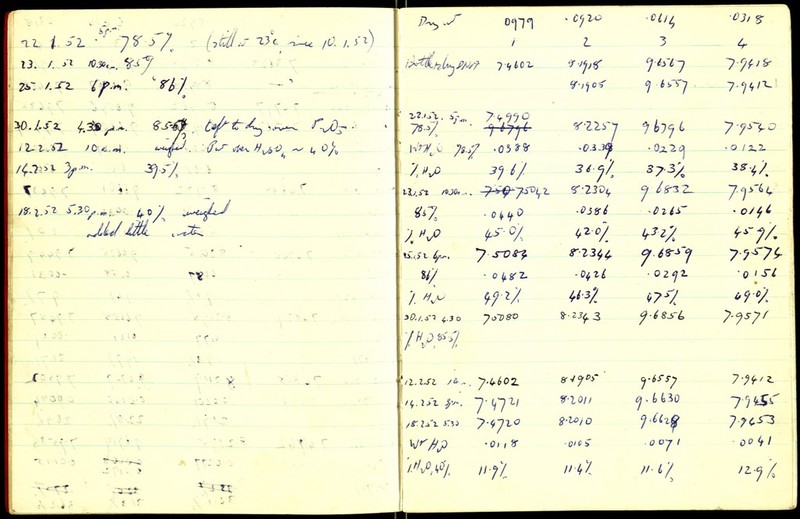 22.1.52 5pm. 78.5% (still at 23°C, since 10.1.52)
23.1.52 10.30am. 85%
25.1.52 6 p.m. 86% —"—
30.1.52 4.30 p.m. 85.5% Left to dry over P2O5.
12.2.52 10 a.m. weighed Put over H2SO4 ~ 40%
14.2.52 3 p.m. 39.5%
18.2.52 5.30 p.m. 40% weighed
added little water
Dry wt .0979 .0920 .0614 .0318
1 2 3 4
Bottle + dry DNA 7.4602 8.1918 9.6567 7.9418
8.1905 9.6557 7.9412
22.1.52 5pm. 7.4990
78.5% 8.2257 9.6796 7.9540
Wt H2O 78.5% .0388 .0339 .0229 .0122
% H2O 39.6% 36.9% 37.3% 38.4%
23.1.52 10.30am. 7.5042 8.2304 9.6832 7.9564
85% .0440 .0386 .0265 .0146
% H2O 45.0% 42.0% 43.2% 45.9%
25.1.52 6pm. 7.5084 8.2344 9.6859 7.9574
86% .0482 .0426 .0292 .0156
% H2O 49.2% 46.3% 47.5% 49.0%
30.1.52 4.30 7.5080 8.2343 9.6856 7.9571
% H2O, 85.5%
12.2.52 10am. 7.4602 8.1905 9.6557 7.9412
14.2.52 3pm. 7.4721 8.2011 9.6630 7.9455
18.2.52 5.30 7.4720 8.2010 9.6628 7.9453
Wt H2O .0118 .0105 .0071 .0041
% H2O, 40% 11.9% 11.4% 11.6% 12.9%